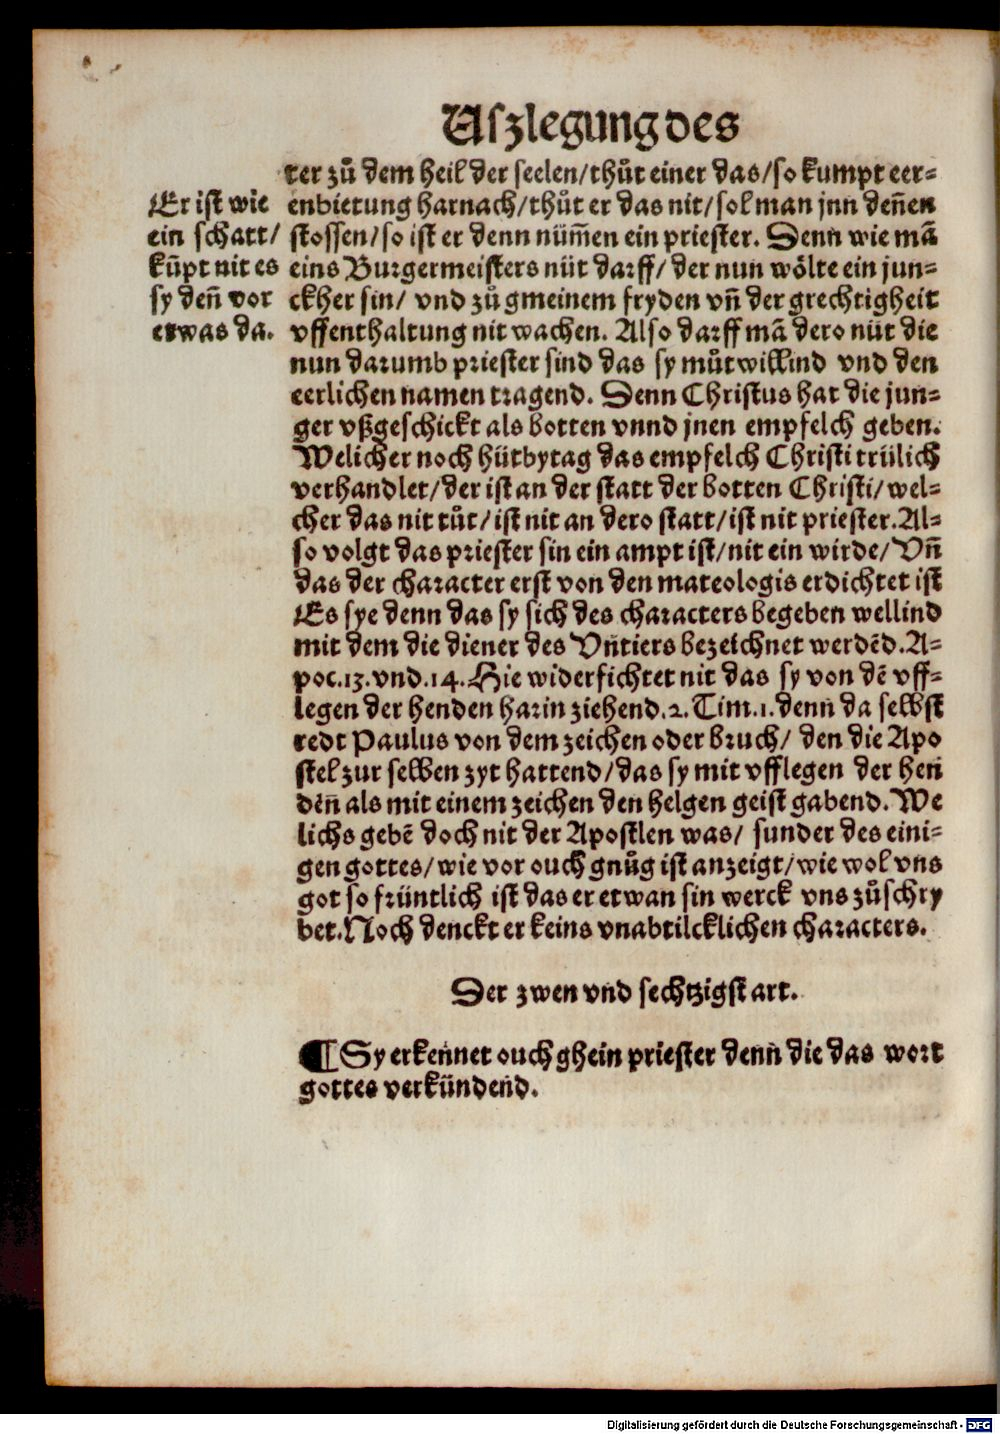 Uſzlegung des
ter zuͦ dem heil der seelen/thuͦt einer das/so kumpt eer⸗
enbietung harnach/thuͦt er das nit/sol man jnn deñen
stossen/so ist er denn nüm̄en ein priester. Denn wie mā
eins Burgermeisters nüt darff/ der nun woͤlte ein jun⸗
ckher sin/ vnd zuͦ gmeinem fryden vn̄ der grechtigheit
vffenthaltung nit wachen. Also darff mā dero nüt die
nun darumb priester sind das sy muͦtwillind vnd den
eerlichen namen tragend. Denn Christus hat die jun⸗
ger vßgeschickt als botten vnnd jnen empfelch geben.
Welicher noch hütbytag das empfelch Christi trülich
verhandlet/der ist an der statt der botten Christi/wel⸗
cher das nit tuͦt/ist nit an dero statt/ist nit priester.Al⸗
so volgt das priester sin ein ampt ist/nit ein wirde/Vn̄
das der character erst von den mateologis erdichtet ist
Es sye denn das sy sich des characters begeben wellind
mit dem die diener des Vntiers bezeichnet werdēd.A⸗
poc.13.vnd.14.Hie widerfichtet nit das sy von dē vff⸗
legen der henden harin ziehend.2.Tim.1.denn da selbst
redt Paulus von dem zeichen oder bruch/ den die Apo
stel zur selben zyt hattend/das sy mit vfflegen der hen
dēn als mit einem zeichen den helgen geist gabend.We
lichs gebē doch nit der Apostlen was/ sunder des eini⸗
gen gottes/wie vor ouch gnuͦg ist anzeigt/wie wol vns
got so früntlich ist das er etwan sin werck vns zuͦschry
bet.Noch denckt er keins vnabtilcklichen characters.
Er ist wie
ein schatt/
kūpt nit es
sy deñ vor
etwas da.
Der zwen vnd sechtzigst art.
¶ Sy erkennet ouch ghein priester denn die das wort
gottes verkündend.
Digitalisierung gefördert durch die Deutsche Forschungsgemeinschaft - DFG